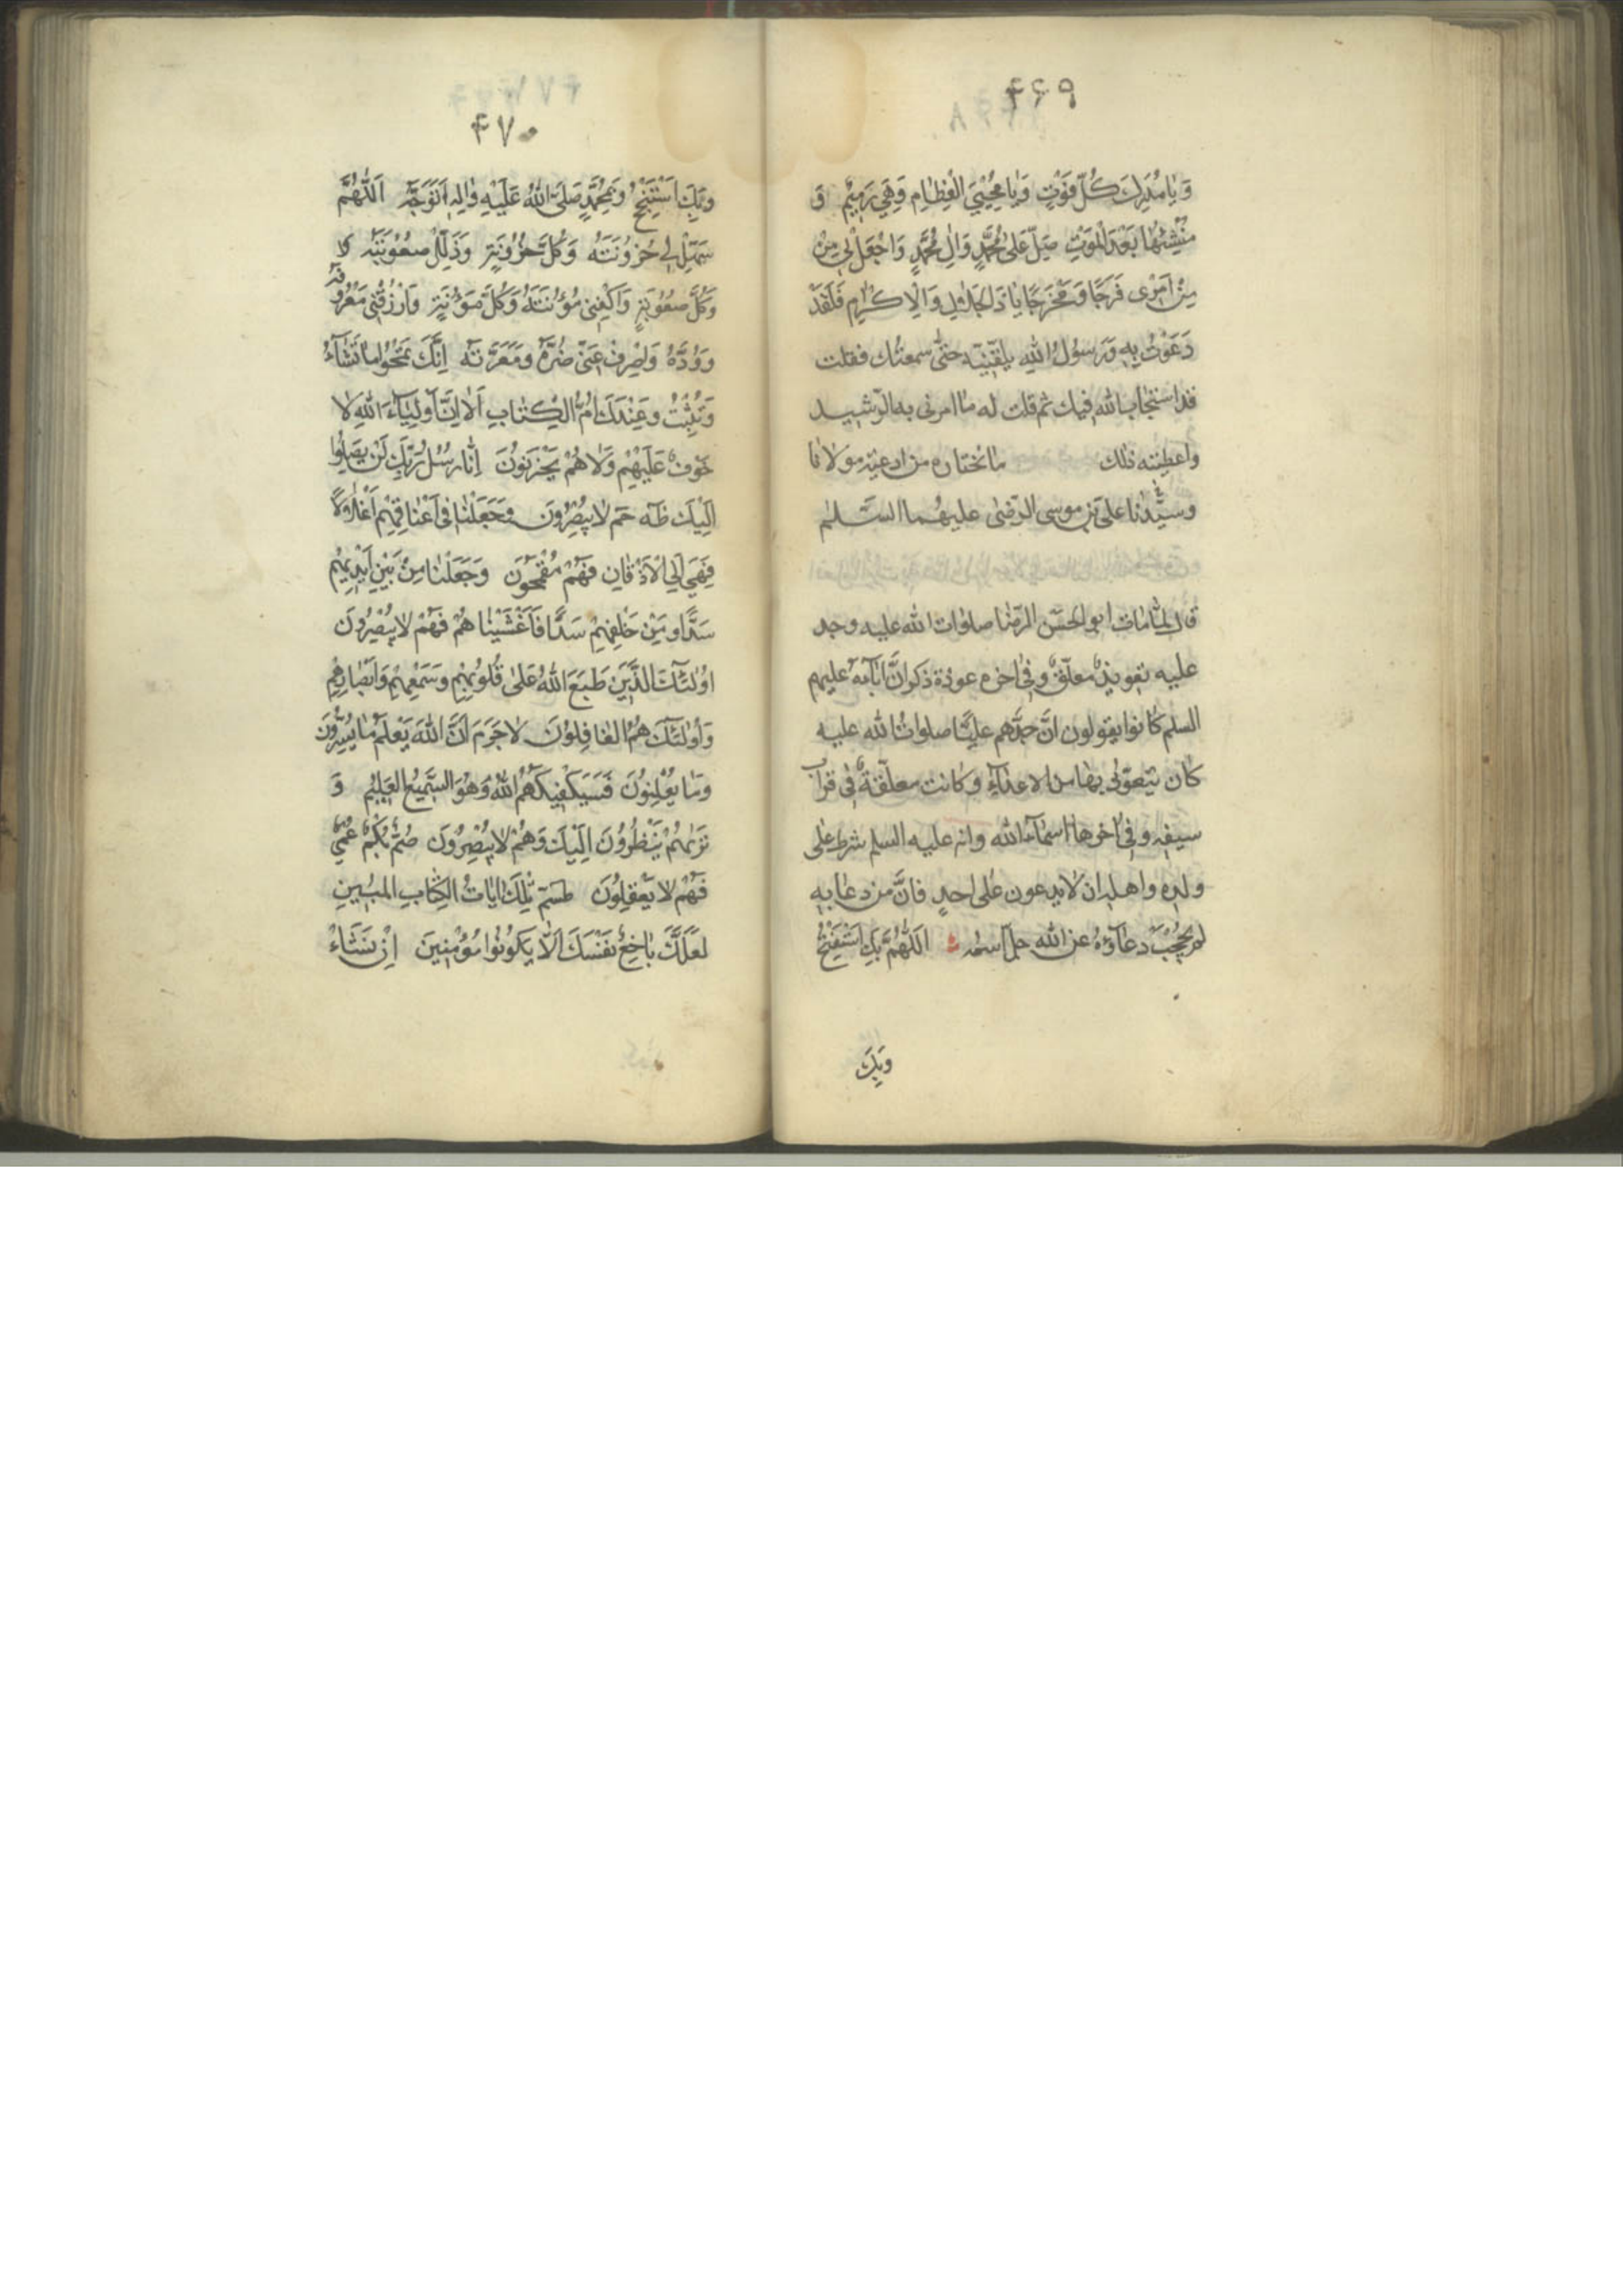 ۴۶۹
وَيٰا مُدْرِكَ كُلِّ فَوْتٍ وَيٰا مُحْيِيَ الْعِظٰامِ وَهِيَ رَمِيمٌ وَ
مُنْشِئَهٰا بَعْدَ الْمَوْتِ صَلِّ عَلىٰ مُحَمَّدٍ وَاٰلِ مُحَمَّدٍ وَاجْعَلْ لِي مِنْ
مِنْ اَمْرِى فَرَجًا وَمَخْرَجًا يٰا ذَا الْجَلٰالِ وَالْاِكْرٰامِ فَلَقَدْ
دَعَوْتُ بِهِ وَرَسُولُ اللهِ يلقّنيه حتّى سمعتك فقلت
قد استجاب الله فيك ثم قلت له ما امرنى به الرّشيد
واعطيته ذلك ما نختاره من ادعية مولانا
وسيّدنا على بن موسى الرّضى عليهما السّلم
قال لمّا مات ابو الحسن الرّضا صلوات الله عليه وجد
عليه تعويذ معلّق وفى اخره عوذة ذكر انّ اٰبآءه عليهم
السلم كانوا يقولون انّ جدّهم عليًّا صلوات الله عليه
كان يتعوّذ بها من الاعدآء وكانت معلّقة فى قراب
سيفه وفى اخرها اسمآء الله وانه عليه السلم شرط على
ولده واهله ان لا يدعون على احدٍ فانّ من دعا به
لم يحجب دعآؤه عن الله جل اسمه اَللّٰهُمَّ بِكَ اَسْتَفْتِحُ
وَبِكَ
۴۷۰
وَبِكَ اَسْتَنْجِحُ وَبِمُحَمَّدٍ صَلَّى اللهُ عَلَيْهِ وَاٰلِهِ اَتَوَجَّهُ اَللّٰهُمَّ
سَهِّلْ لِي حُزُونَتَهُ وَكُلَّ حُزُونَةٍ وَذَلِّلْ لِي صُعُوبَتَهُ
وَكُلَّ صُعُوبَةٍ وَاكْفِنِى مَؤُنَتَهُ وَكُلَّ مَؤُنَةٍ وَارْزُقْنِى مَعْرُوفَهُ
وَوُدَّهُ وَاصْرِفْ عَنِّى ضُرَّهُ وَمَعَرَّتَهُ اِنَّكَ تَمْحُوا مَا تَشٰآءُ
وَتُثْبِتُ وَعِنْدَكَ اُمُّ الْكِتٰابِ اَلٰا اِنَّ اَوْلِيٰآءَ اللهِ لٰا
خَوْفٌ عَلَيْهِمْ وَلٰا هُمْ يَحْزَنُونَ اِنّٰا رُسُلُ رَبِّكَ لَنْ يَصِلُوا
اِلَيْكَ طٰهٰ حٰم لٰا يُبْصِرُونَ وَجَعَلْنٰا فِى اَعْنٰاقِهِمْ اَغْلٰالًا
فَهِيَ اِلَى الْاَذْقٰانِ فَهُمْ مُقْمَحُونَ وَجَعَلْنٰا مِنْ بَيْنِ اَيْدِيهِمْ
سَدًّا وَمِنْ خَلْفِهِمْ سَدًّا فَاَغْشَيْنٰاهُمْ فَهُمْ لٰا يُبْصِرُونَ
اُولٰئِكَ الَّذِينَ طَبَعَ اللهُ عَلىٰ قُلُوبِهِمْ وَسَمْعِهِمْ وَاَبْصٰارِهِمْ
وَاُولٰئِكَ هُمُ الْغٰافِلُونَ لٰا جَرَمَ اَنَّ اللهَ يَعْلَمُ مٰا يُسِرُّونَ
وَمٰا يُعْلِنُونَ فَسَيَكْفِيكَهُمُ اللهُ وَهُوَ السَّمِيعُ الْعَلِيمُ وَ
تَرٰىهُمْ يَنْظُرُونَ اِلَيْكَ وَهُمْ لٰا يُبْصِرُونَ صُمٌّ بُكْمٌ عُمْيٌ
فَهُمْ لٰا يَعْقِلُونَ طٰسٓمٓ تِلْكَ اٰيٰاتُ الْكِتٰابِ الْمُبِينِ
لَعَلَّكَ بٰاخِعٌ نَفْسَكَ اَلّٰا يَكُونُوا مُؤْمِنِينَ اِنْ نَشَاْ